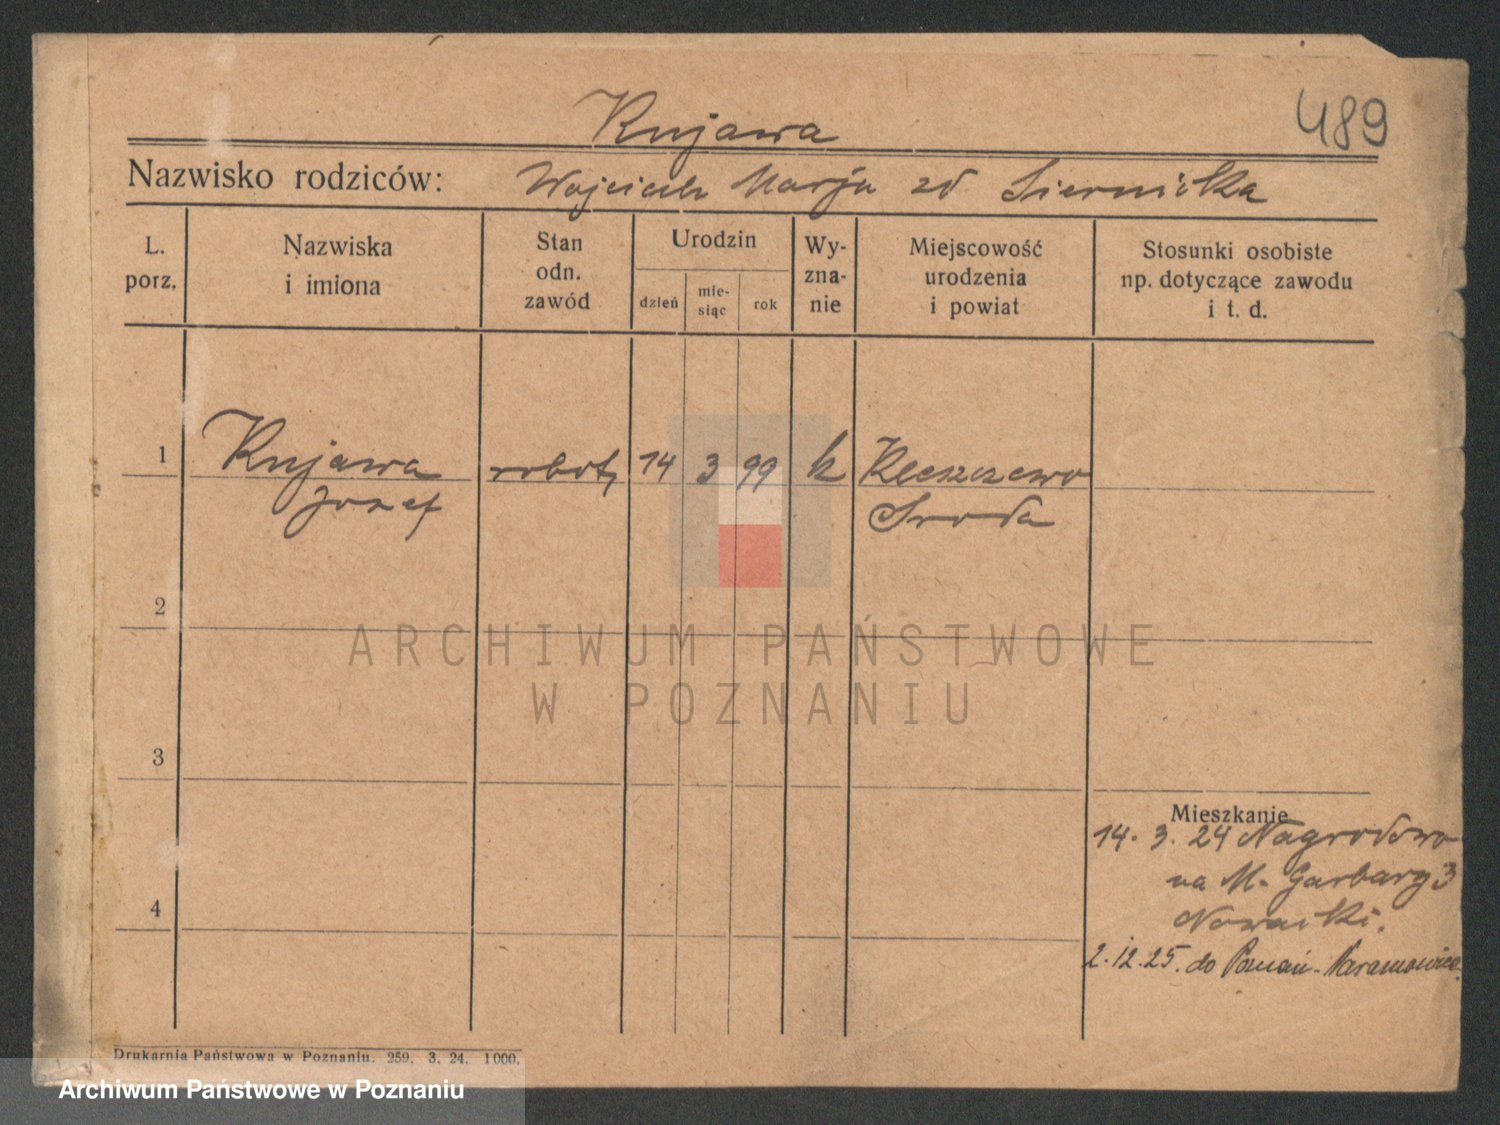 489
Kujawa
Nazwisko rodziców: Wojciech Marja zd Siernicka
L. porz.
Nazwiska i imiona
Stan odn. zawód
Urodzin
dzień
mie-siąc
rok
Wy-zna-nie
Miejscowość urodzenia i powiat
Stosunki osobiste np. dotyczące zawodu i t. d.
1 Kujawa robotn 14 3 99 k Kleszczewo
Jozef Sroda
2
ARCHIWUM PAŃSTWOWE
W POZNANIU
3
Mieszkanie
14. 3. 24 Nagrodowo
na M. Garbary 3
4
Nowacki.
2.12.25. do Poznań - Naramowice
Drukarnia Państwowa w Poznaniu. 259. 3. 24. 1000.
Archiwum Państwowe w Poznaniu